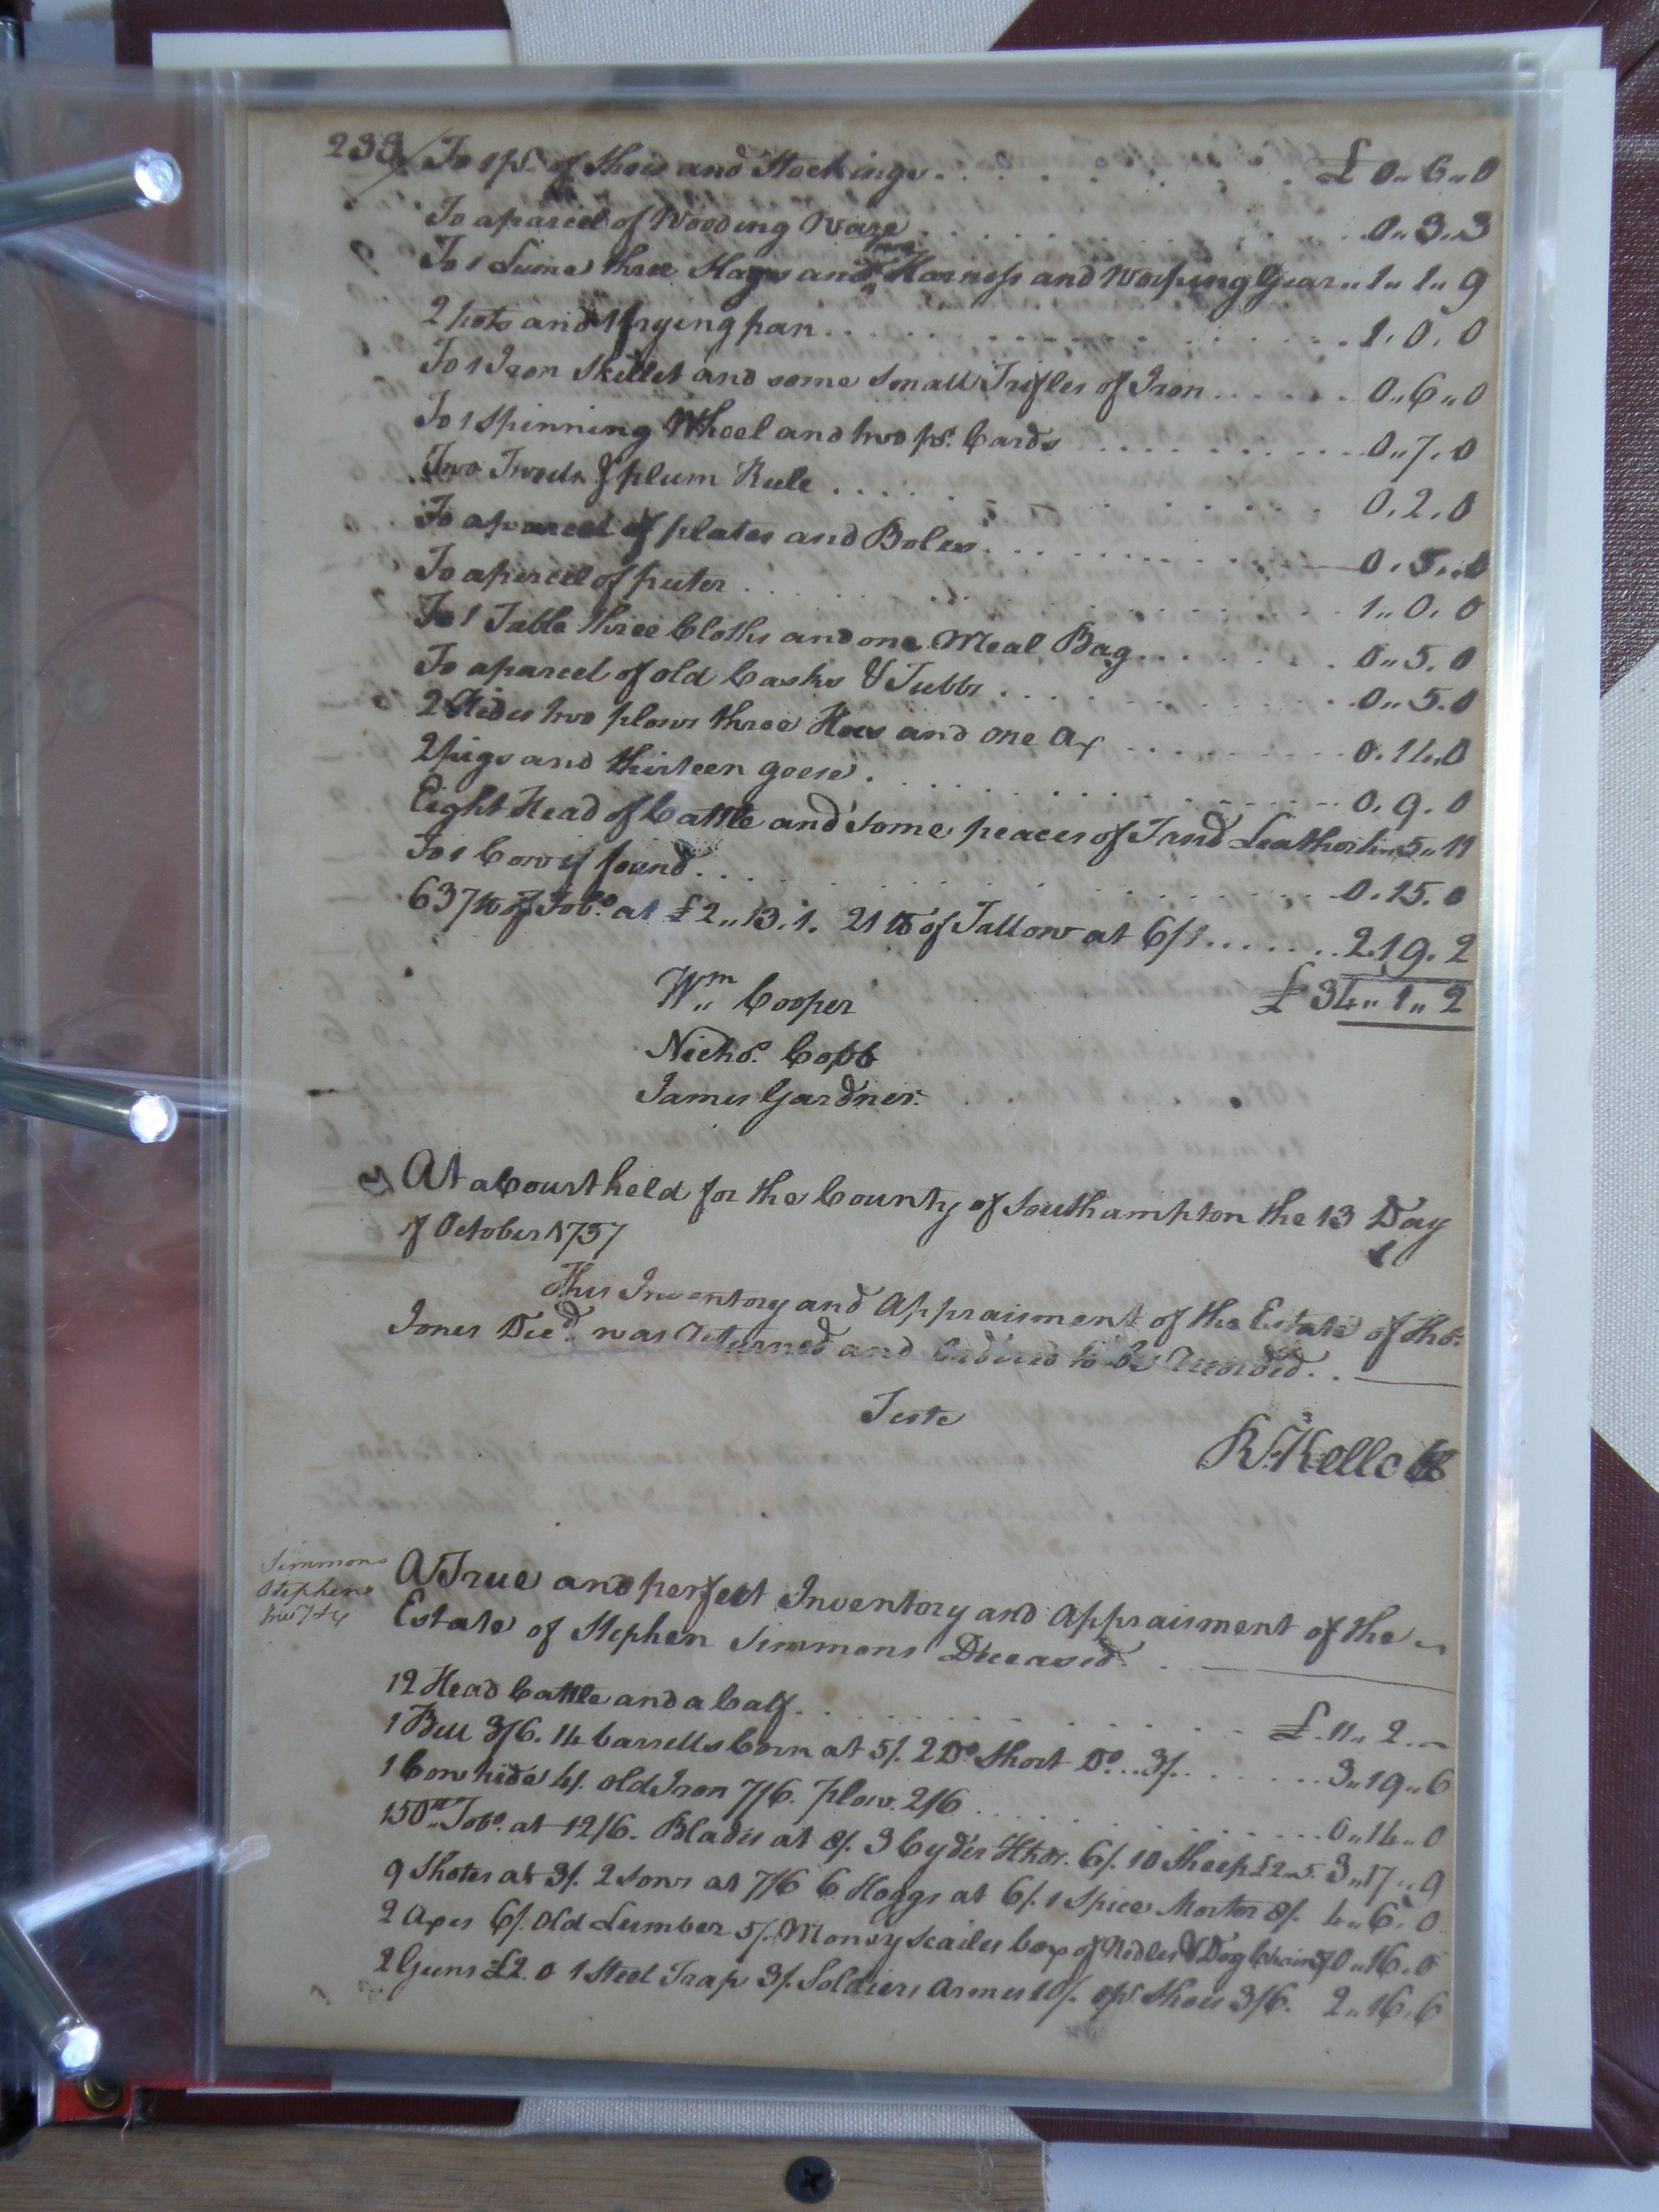 233 To 1 pr. of Shoes and Stockings . . . . . £ 0,, 6,, 0
To a parcel of Wooding Ware . . . . . 0,, 3,, 3
To 1 Lume three Slays and two Harness and Worping Gear,, 1,, 1,, 9
2 pots and 1 frying pan . . . . . 1. 0. 0
To 1 Iron Skillet and some small Trifles of Iron . . . . . 0,, 6,, 0
To 1 Spinning Wheel and two pr. Cards . . . . . 0,, 7. 0
Two & plum Rule . . . . . 0. 2. 0
To a parcel of plates and Boles . . . . . 0. 5.. 0
To a percel of puter . . . . . 1,, 0. 0
To 1 Table three Cloths and one Meal Bag . . . . . 0,, 5. 0
To a parcel of old Casks & Tubbs . . . . . 0,, 5. 0
2 Hides two plows three Hoes and one Ax . . . . . 0. 14,, 0
2 pigs and thirteen geese . . . . . 0. 9. 0
Eight Head of Cattle and some peaces of Tand Leather 5,, 11
To 1 Cow if found . . . . . 0. 15. 0
637 lb of Tobo. at £2,, 13. 1. 21 lb of Tallow at 6/1 . . . . . 2. 19. 2
£ 34,, 1,, 2
Wm. Cooper
Nicho. Cobb
James Gardner.
At a Court held for the County of Southampton the 13 Day
of October 1757
This Inventory and Appraisment of the Estate of Tho.
Jones Decd. was Returned and Ordered to be Recorded . .
Teste
R. Kello
Simmons
Stephens
A True and perfect Inventory and Appraisment of the
Estate of Stephen Simmons Deceased .
12 Head Cattle and a Calf . . . . . £. 11,, 2. –
1 Bull 3/6. 14 barrells Corn at 5/. 2 Do. Short Do. . . 3/. . . . . 3,, 19,, 6
1 Cowhide 4/. old Iron 7/6. plow. 2/6 . . . . . 0,, 14,, 0
150 lb Tobo. at 12/6. Blades at 8/. 3 Cyder Hhds. 6/. 10 Sheep £2,, 5. 3,, 17,, 9
9 Shotes at 3/. 2 Sows at 7/6 6 Hoggs at 6/. 1 Spice Morter 8/. 4,, 6. 0
2 Axes 6/. Old Lumber 5/. Money Scailes box of Nidles & Dog Chain 5/ 0,, 16. 0
2 Guns £2. 0 1 Steel Trap 3/. Soldiers Armes 10/. 1 pr. Shoes 3/6. 2,, 16. 6